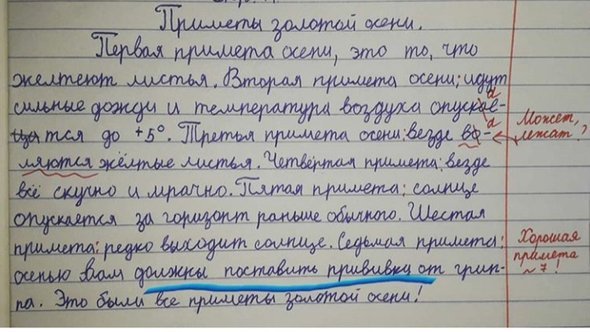 Приметы золотой осени.
Первая примета осени, это то, что
желтеют листья. Вторая примета осени: идут
сильные дожди и температура воздуха опускае-
тся до +5°. Третья примета осени: везде во-
Может,
лежат?
ляются жёлтые листья. Четвёртая примета: везде
всё скучно и мрачно. Пятая примета: солнце
опускается за горизонт раньше обычного. Шестая
примета: редко выходит солнце. Седьмая примета:
осенью Вам должны поставить прививку от грип-
па. Это были все приметы золотой осени!
Хорошая
примета
~ 7!